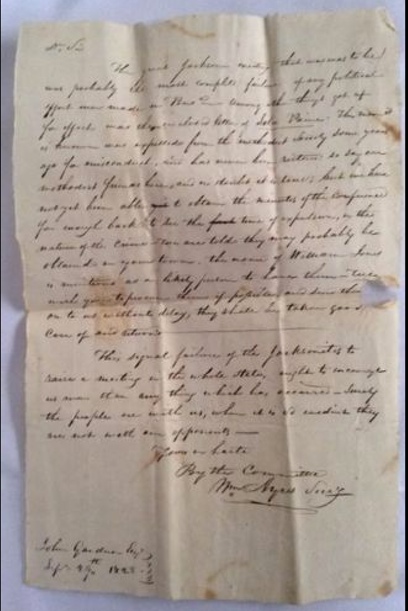 Dr. Sir
The great Jackson meeting that was to be
was probably the most complete failure of any political
effort ever made in Among the things got up
for effect was the enclosed letter of The man
is known was expelled from the methodist Society some years
ago for misconduct, and has never been restored so say our
methodist friends here, and no doubt it is true; but we have
not yet been able to obtain the minutes of the Conference
far enough back to see the time of expulsion, or the
nature of the Crime - we are told they may probably be
obtained in your town. the name of William Jones
is mentioned as a likely person to have them
wish you to procure them if possible, and send them
on to us without delay, they shall be taken good
care of and returned
This signal failure of the Jacksonites to
raise a meeting in the whole State, ought to encourage
us more than any thing which has occurred - Surely
the people are with us, when it is so evident they
are not with our opponents
Yours in haste
By the Committee
Wm. Ayres Secy
John Gardner Esqr
Sept 1828